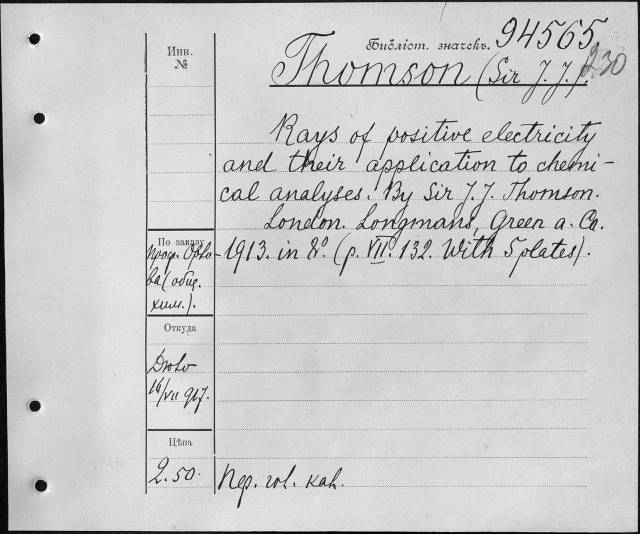 Инв. №
Библіот. значекъ. 94565
230
Thomson (Sir J. J.).
Rays of positive electricity
and their application to chemi-
cal analyses. By Sir J. J. Thomson.
London. Longmans, Green a. Co.
1913. in 8° (p. VII. 132. With 5 plates).
По заказу
проф. Орло-
ва (общ.
хим.).
Откуда
16/VII 917.
Цѣна
2.50.
Пер. кал.